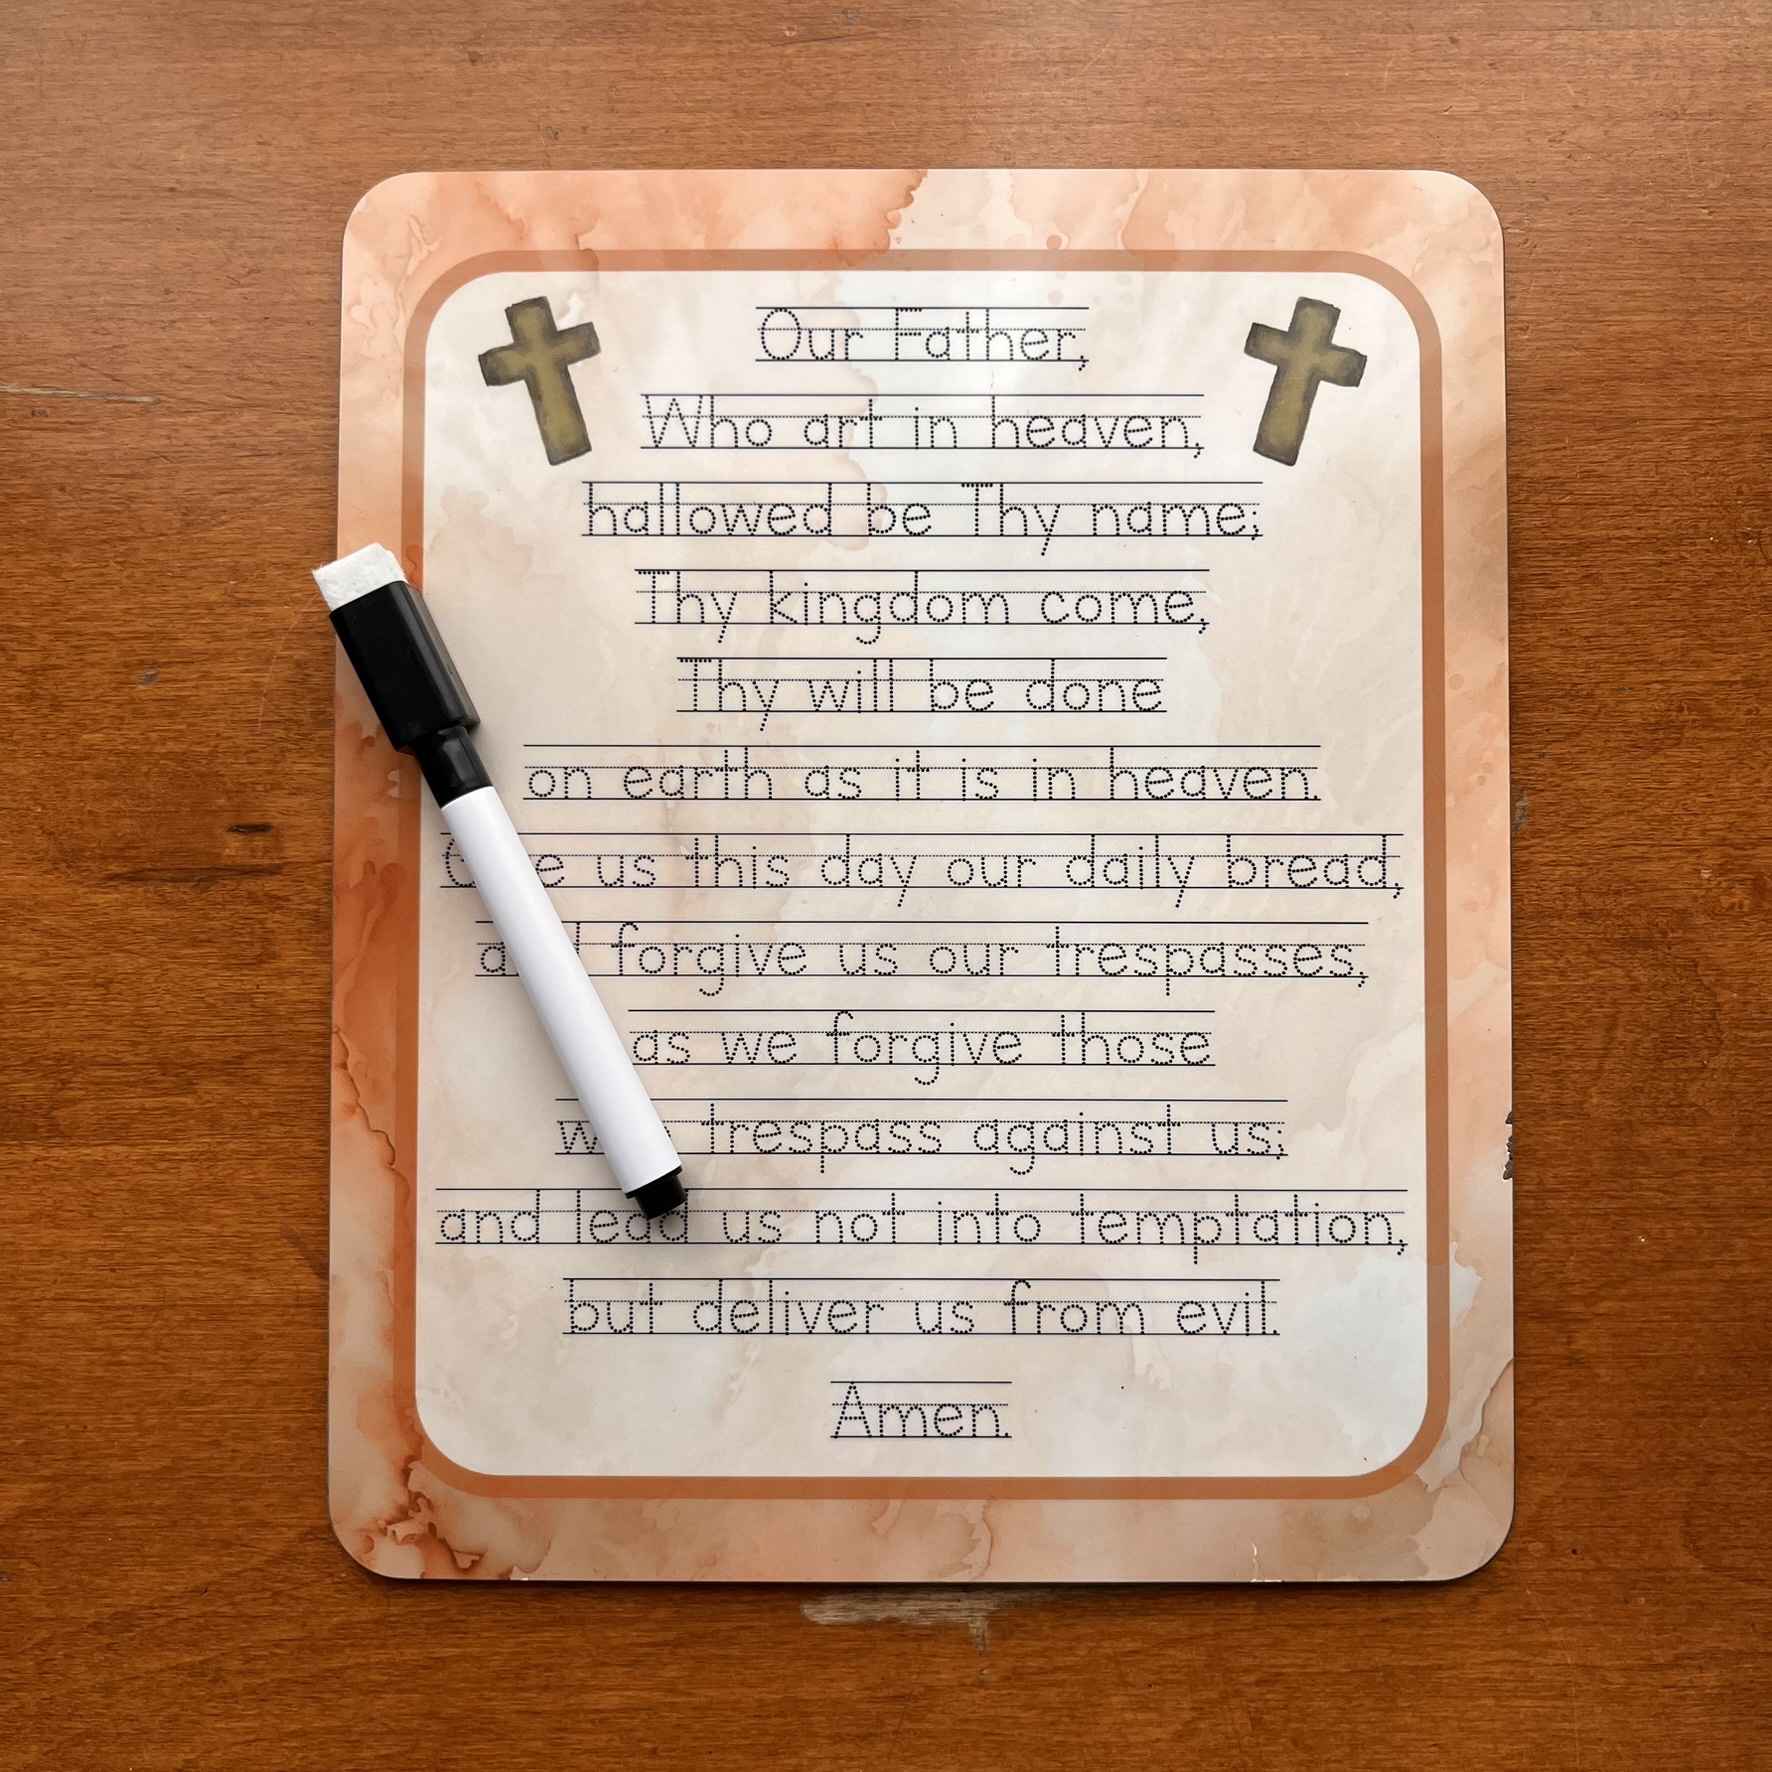 Our Father,
Who art in heaven,
hallowed be Thy name;
Thy kingdom come,
Thy will be done
on earth as it is in heaven.
us this day our daily bread,
forgive us our trespasses,
as we forgive those
trespass against us;
and lead us not into temptation,
but deliver us from evil.
Amen.